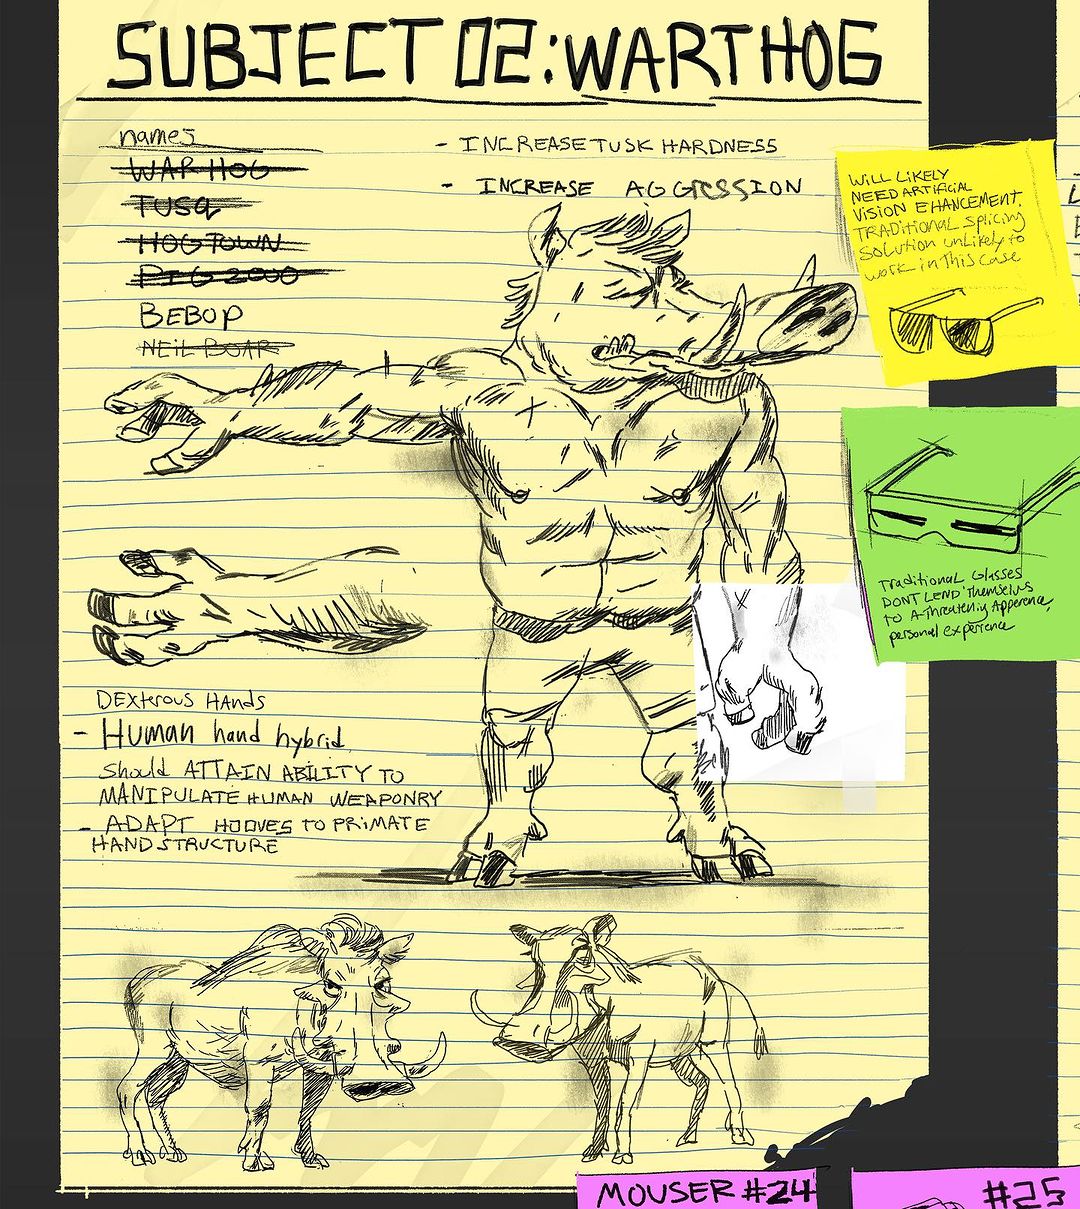 SUBJECT 02: WARTHOG
names
WAR HOG
TUSK
HOGTOWN
PIG 2000
BEBOP
NEIL BOAR
- INCREASE TUSK HARDNESS
- INCREASE AGGRESSION
WILL LIKELY
NEED ARTIFICIAL
VISION EHANCEMENT.
TRADITIONAL SPLICING
SOLUTION UNLIKELY TO
WORK IN THIS CASE
TRADITIONAL GLASSES
DONT LEND THEMSELVS
TO A THREATENIY APPERENCE,
PERSONAL EXPERIENCE
DEXTEROUS HANDS
- HUMAN hand hybrid
Should ATTAIN ABILITY TO
MANIPULATE HUMAN WEAPONRY
- ADAPT HOOVES TO PRIMATE
HAND STRUCTURE
MOUSER #24
#25